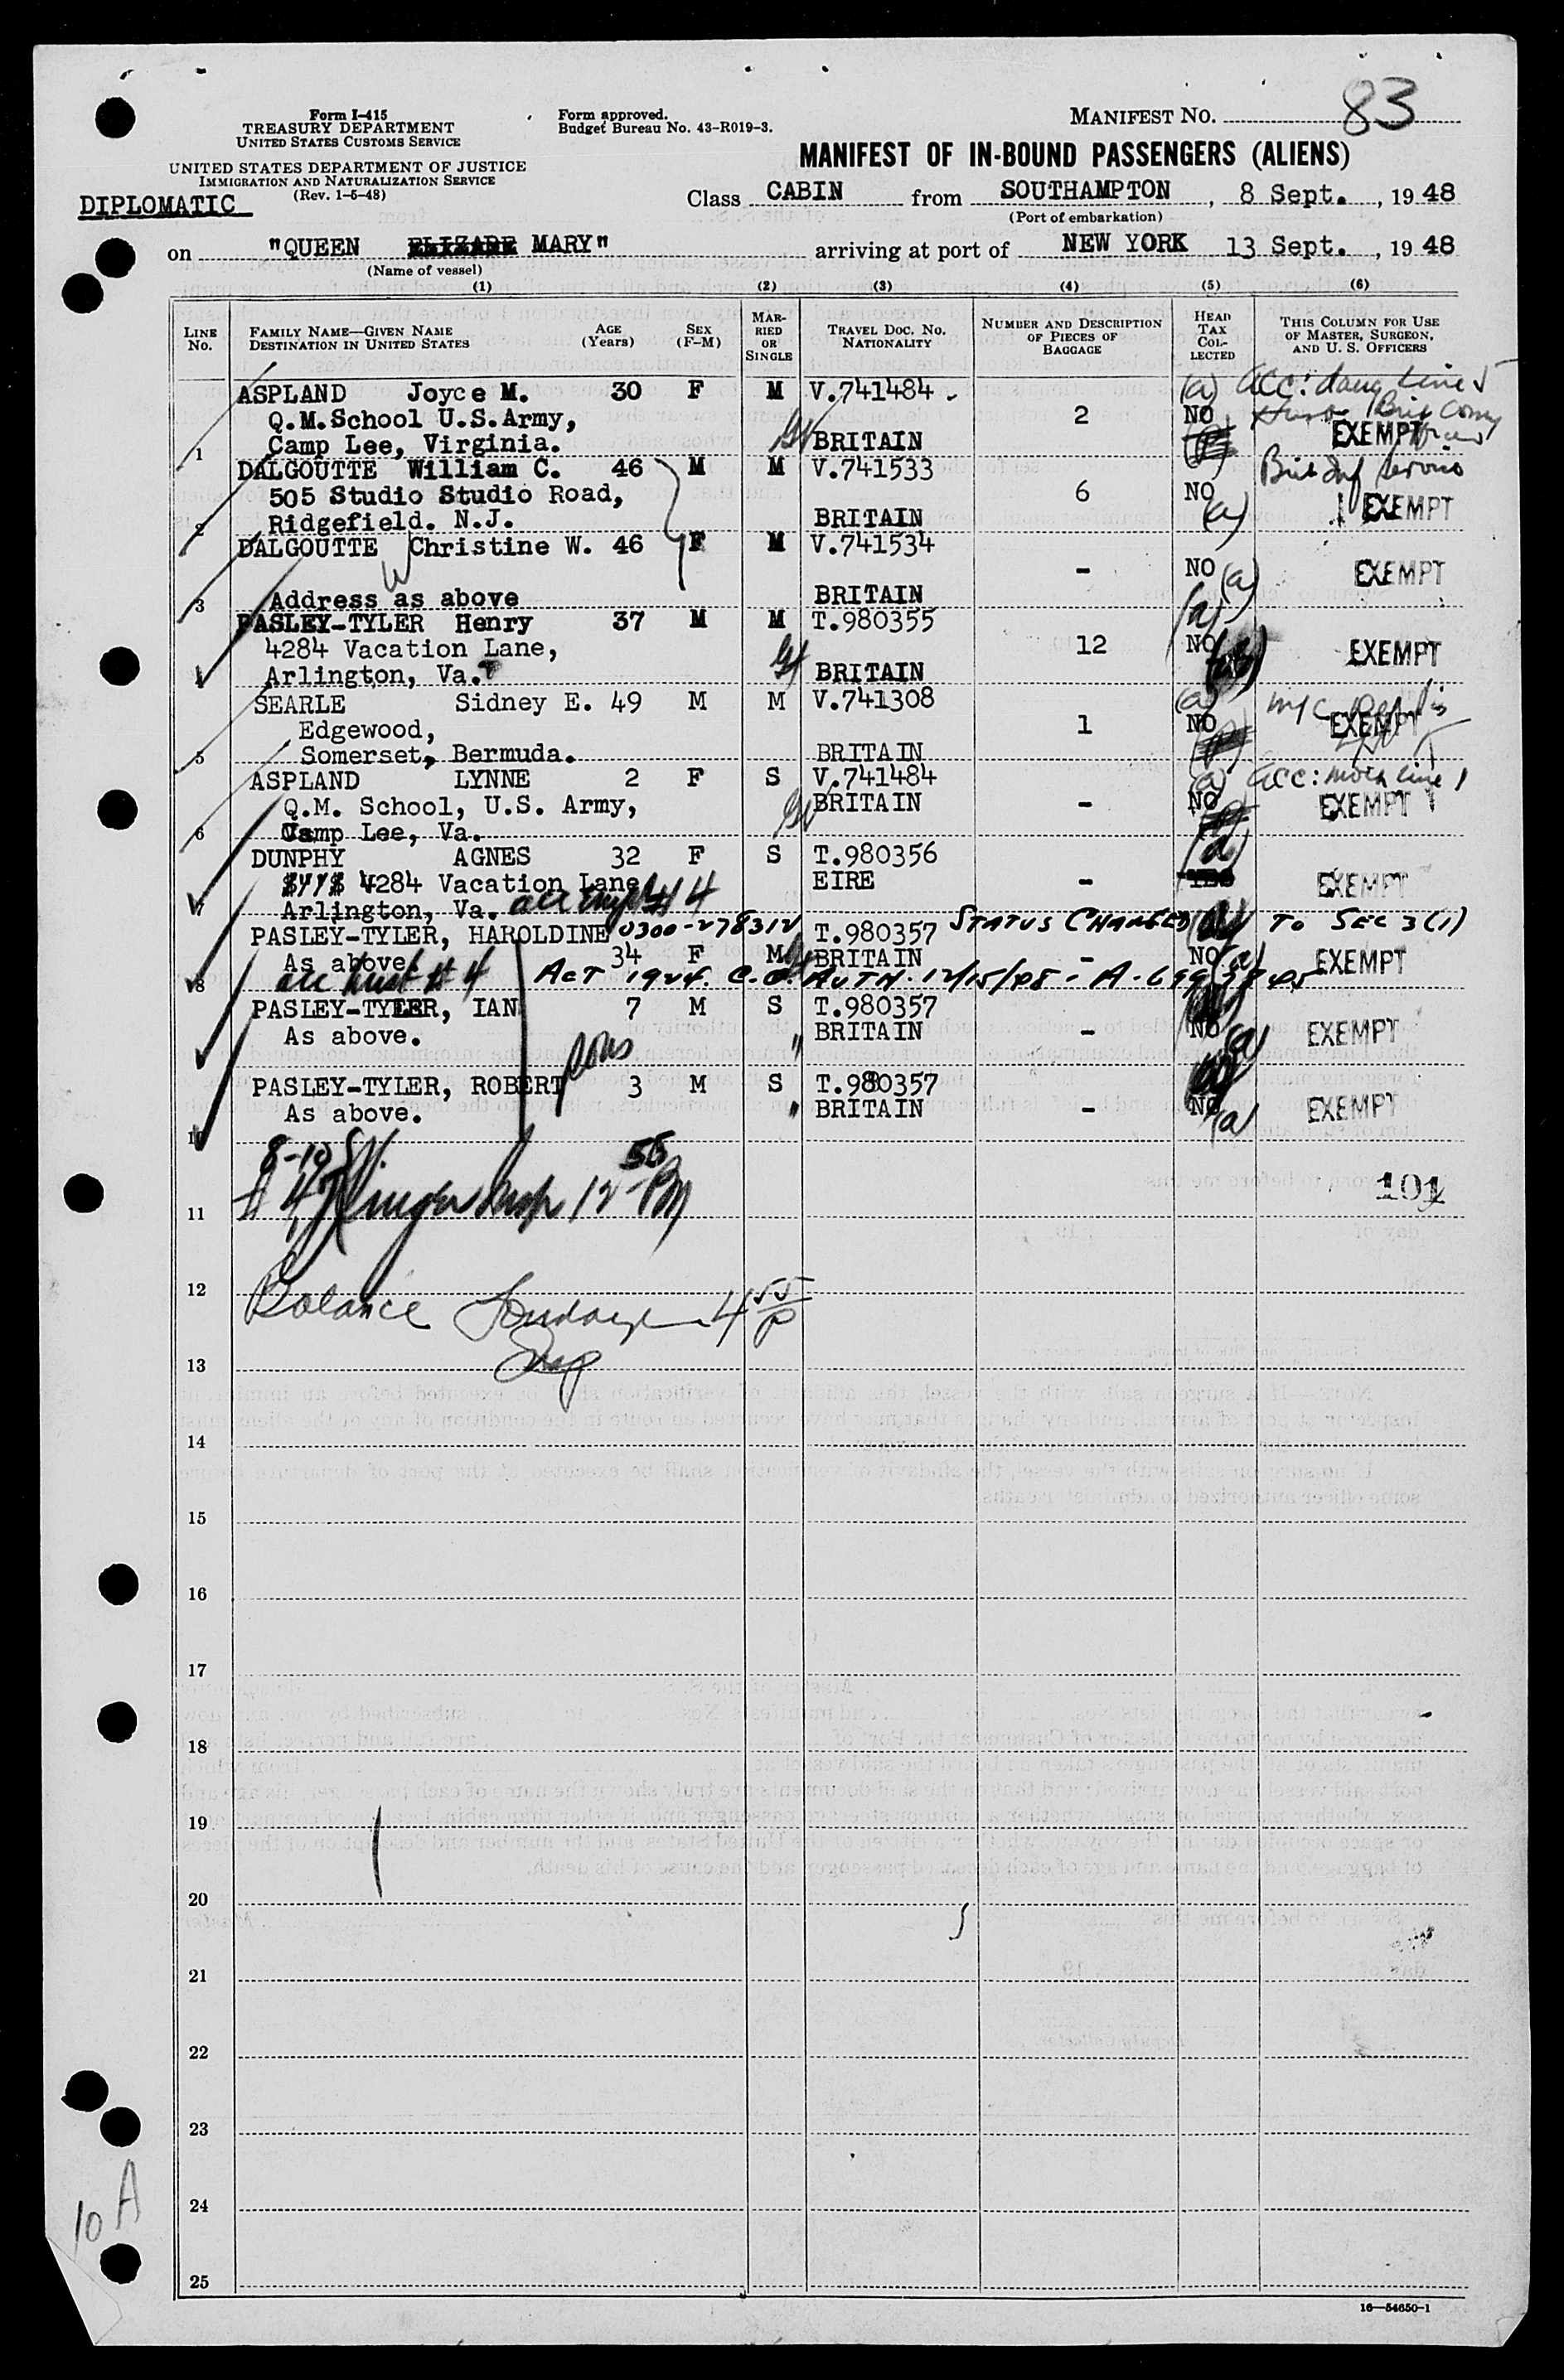 83
Form I-415
TREASURY DEPARTMENT
UNITED STATES CUSTOMS SERVICE
Form approved.
Budget Bureau No. 43-R019-3.
MANIFEST NO.
UNITED STATES DEPARTMENT OF JUSTICE
IMMIGRATION AND NATURALIZATION SERVICE
(Rev. 1-5-48)
MANIFEST OF IN-BOUND PASSENGERS (ALIENS)
DIPLOMATIC
Class CABIN from SOUTHAMPTON, 8 Sept., 1948
(Port of embarkation)
on "QUEEN MARY" arriving at port of NEW YORK 13 Sept., 1948
(Name of vessel)
(1) (2) (3) (4) (5) (6)
LINE No. FAMILY NAME—GIVEN NAME DESTINATION IN UNITED STATES AGE (Years) SEX (F-M) MARRIED OR SINGLE TRAVEL DOC. NO. NATIONALITY NUMBER AND DESCRIPTION OF PIECES OF BAGGAGE HEAD TAX COLLECTED THIS COLUMN FOR USE OF MASTER, SURGEON, AND U. S. OFFICERS
ASPLAND Joyce M. 30 F M V.741484 (a) acc: daug line
Q.M.School U.S.Army, 2 NO Brit
1 Camp Lee, Virginia. BRITAIN EXEMPT
DALGOUTTE William C. 46 M M V.741533 Brit Inf Service
505 Studio Studio Road, 6 NO
2 Ridgefield. N.J. BRITAIN (a) EXEMPT
DALGOUTTE Christine W. 46 F M V.741534
W - NO (a) EXEMPT
3 Address as above BRITAIN
PASLEY-TYLER Henry 37 M M T.980355 (a)
4284 Vacation Lane, 12 NO EXEMPT
4 Arlington, Va. BRITAIN
SEARLE Sidney E. 49 M M V.741308 (a)
Edgewood, 1 NO EXEMPT
5 Somerset, Bermuda. BRITAIN
ASPLAND LYNNE 2 F S V.741484 (a) acc: moth line 1
Q.M. School, U.S. Army, BRITAIN - NO EXEMPT
6 Camp Lee, Va.
DUNPHY AGNES 32 F S T.980356 (a)
4284 Vacation Lane EIRE - EXEMPT
7 Arlington, Va. acc empl #4
PASLEY-TYLER, HAROLDINE 0300-278312 T.980357 STATUS CHANGED TO SEC 3(1)
As above. 34 F M BRITAIN - NO (a) EXEMPT
8 acc husb #4 ACT 1924. C.O. AUTH. 12/15/48 - A-
PASLEY-TYLER, IAN 7 M S T.980357
As above. BRITAIN - NO (a) EXEMPT
sons
PASLEY-TYLER, ROBERT 3 M S T.980357
As above. " BRITAIN - NO (a) EXEMPT
10
8-10
11 #4 Insp 12 55 PM
101
12
Balance 4 55/P
Insp
13
14
15
16
17
18
19
20
21
22
23
24
25
10 A
16—54650-1